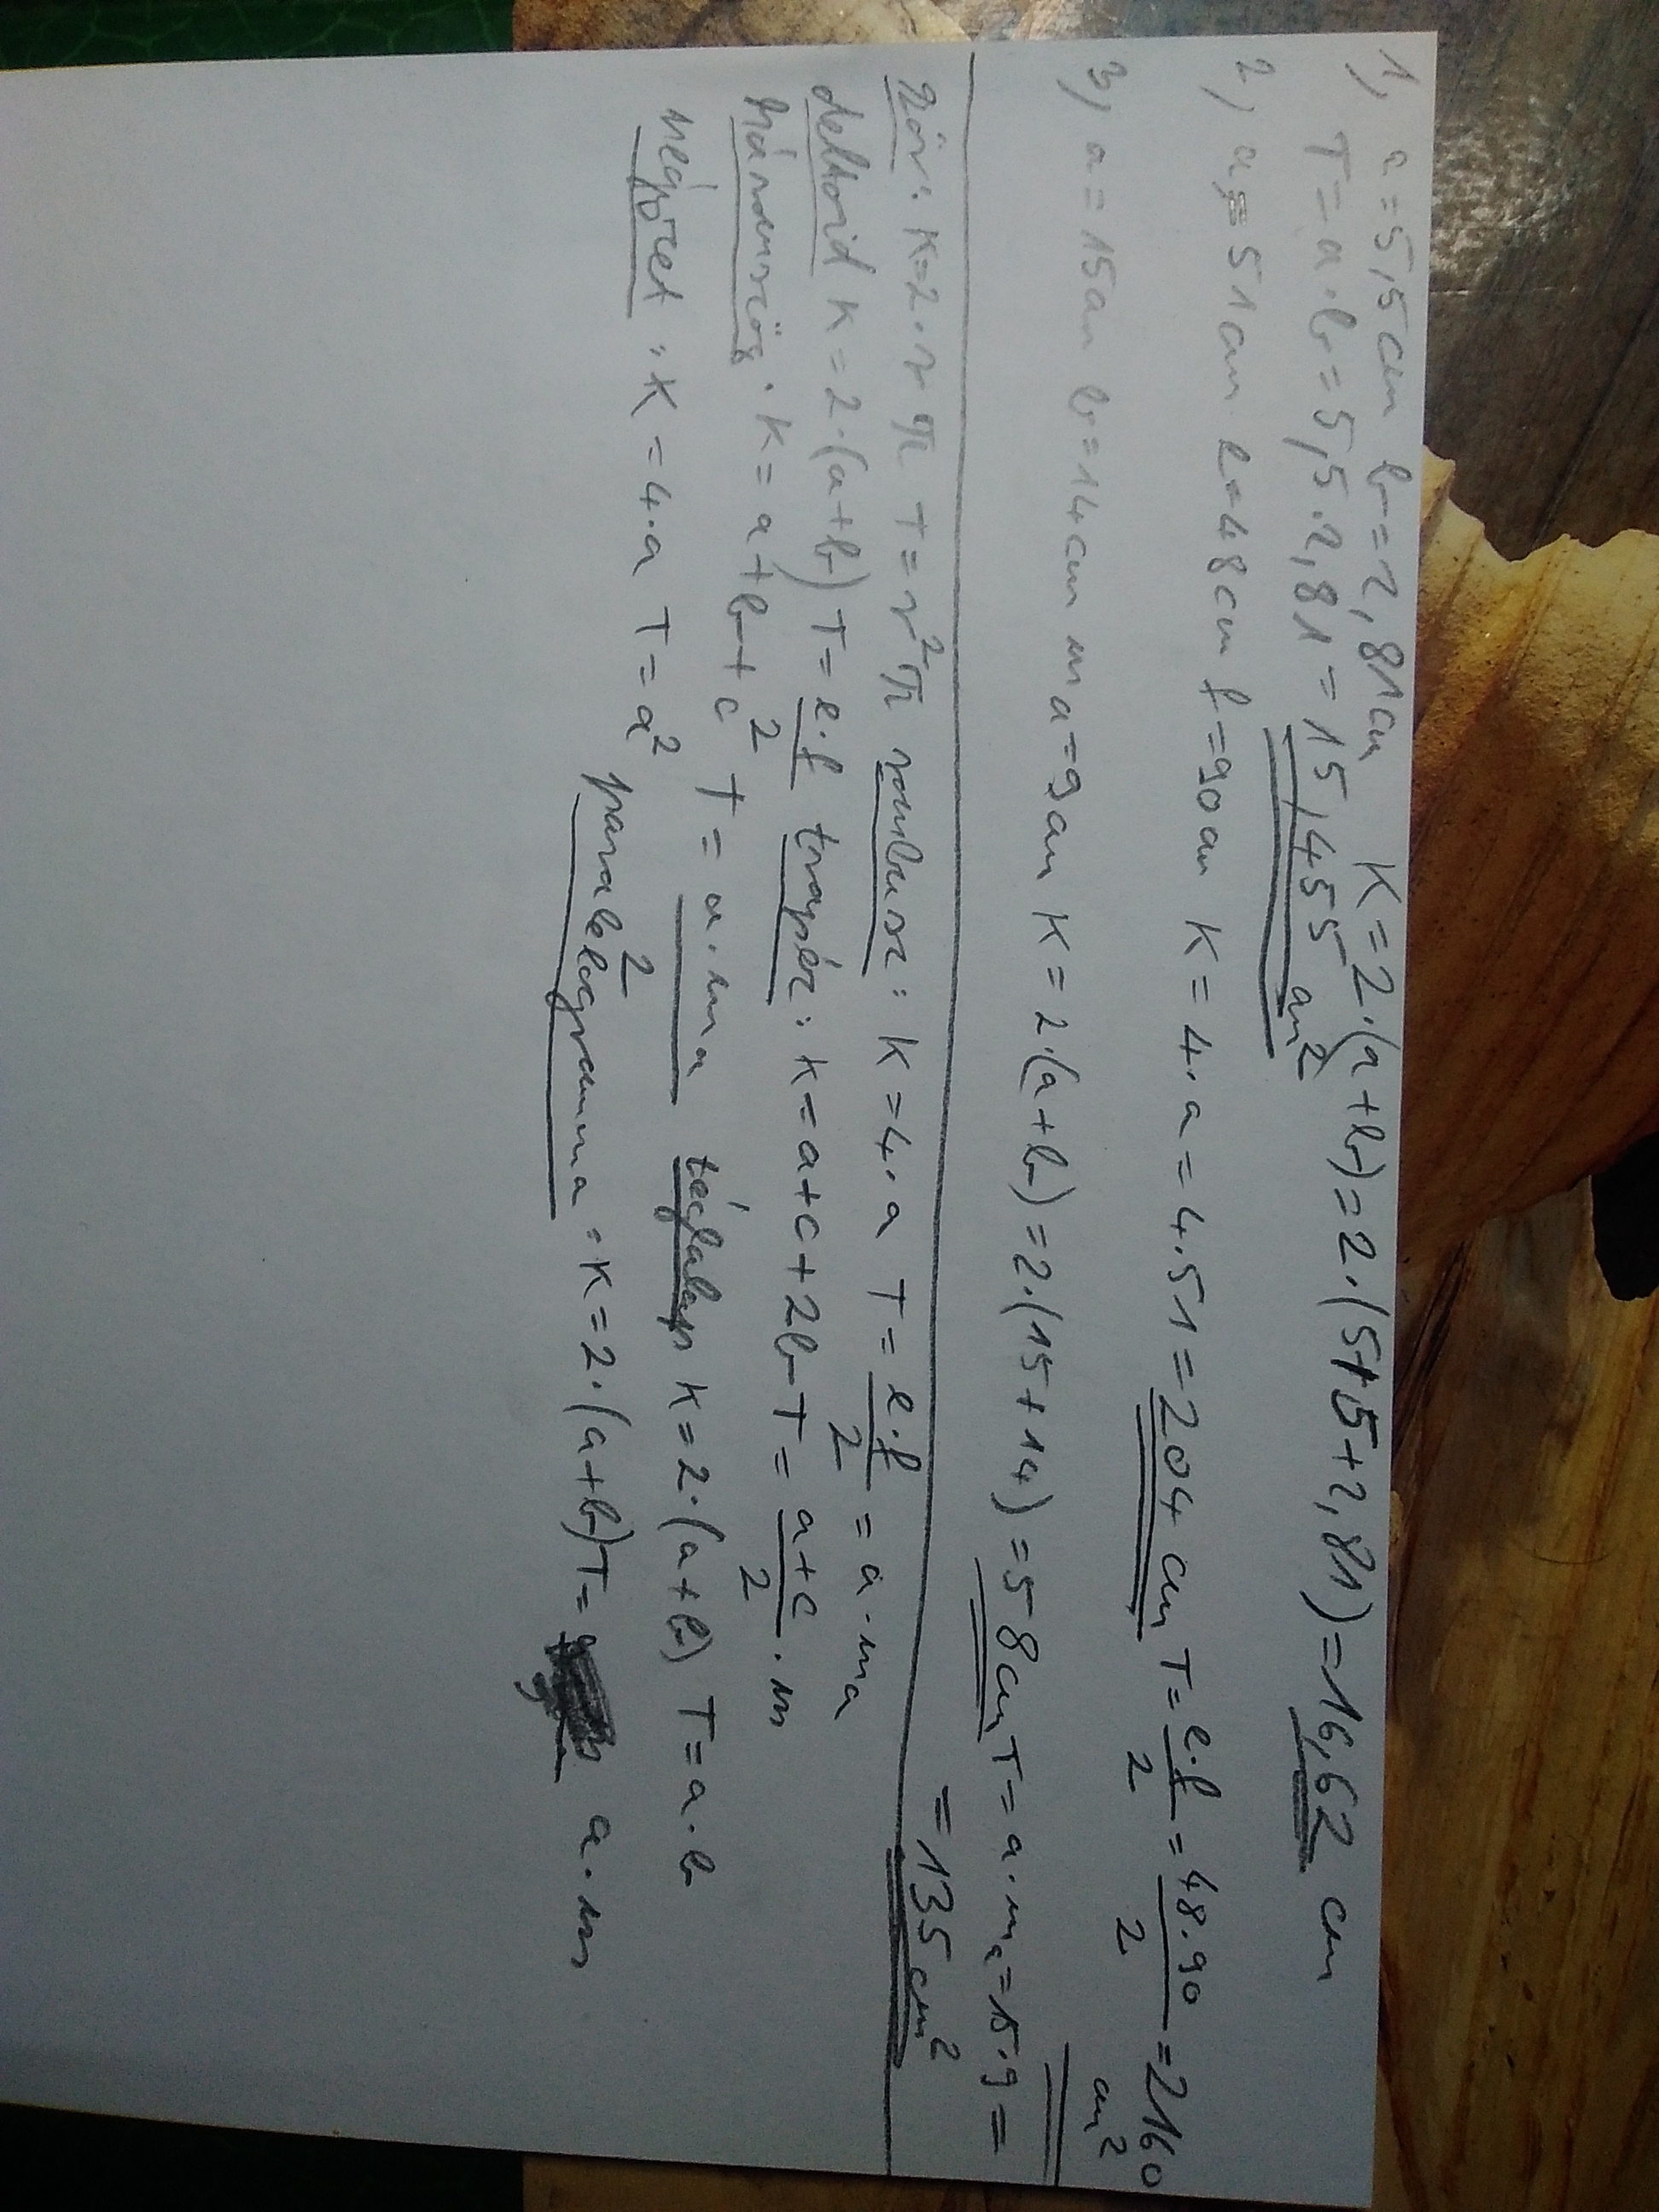 1, a=5,5cm b=2,81cm K=2·(a+b)=2·(5,5+2,81)=16,62 cm
T=a·b=5,5·2,81=15,455 cm²
2, a=51cm e=48cm f=90cm K=4·a=4·51=204 cm T=e·f/2=48·90/2=2160 cm²
3, a=15cm b=14cm ma=9cm K=2·(a+b)=2·(15+14)=58cm T=a·ma=15·9=
=135cm²
kör: K=2·r π T=r²π rombusz: K=4·a T=e·f/2=a·ma
deltoid K=2·(a+b) T=e·f/2 trapéz: K=a+c+2b T=a+c/2·m
háromszög: K=a+b+c T=a·ma/2 téglalap K=2·(a+b) T=a·b
négyzet: K=4·a T=a² paralelogramma: K=2·(a+b) T= a·m